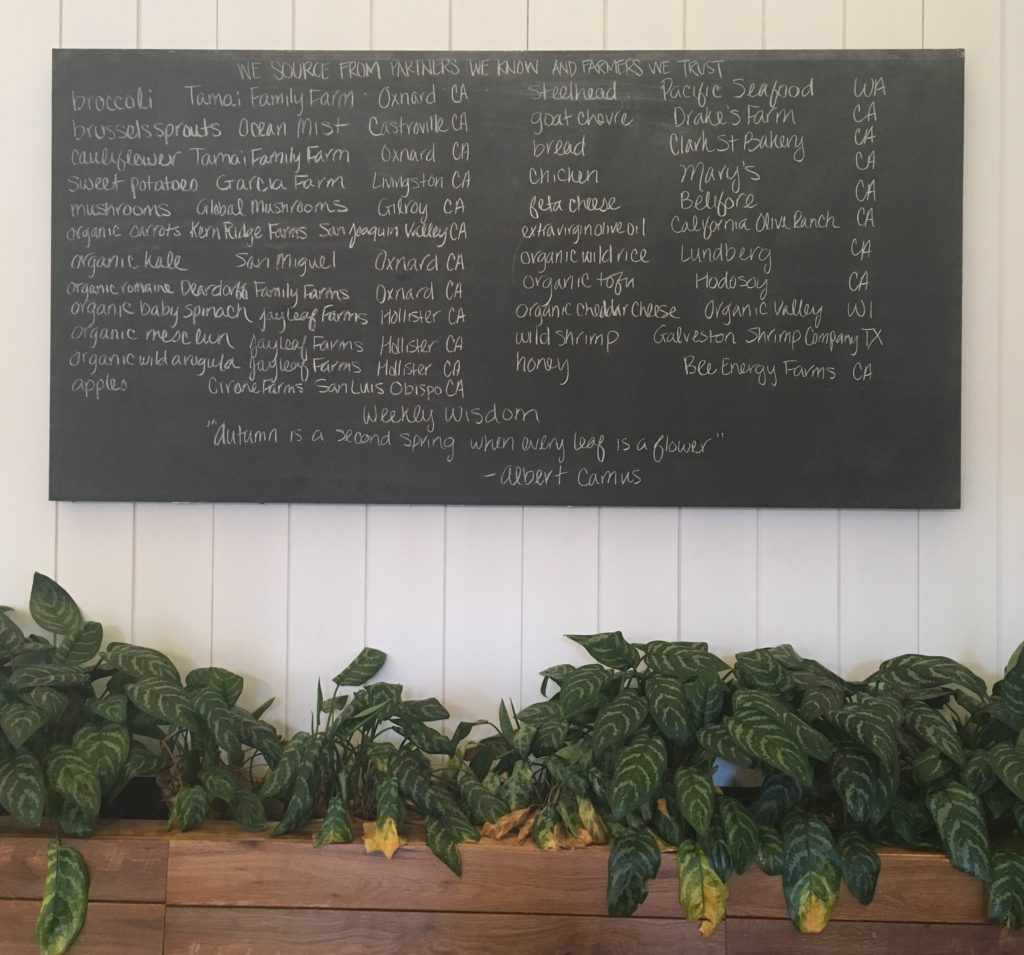 WE SOURCE FROM PARTNERS WE KNOW AND FARMERS WE TRUST
broccoli Tamai Family Farm Oxnard CA
brussels sprouts Ocean Mist Castroville CA
cauliflower Tamai Family Farm Oxnard CA
sweet potatoes Garcia Farm Livingston CA
mushrooms Global Mushrooms Gilroy CA
organic carrots Kern Ridge Farms San Joaquin Valley CA
organic kale San Miguel Oxnard CA
organic romaine Deardorff Family Farms Oxnard CA
organic baby spinach jayleaf Farms Hollister CA
organic mesclun jayleaf Farms Hollister CA
organic wild arugula jayleaf Farms Hollister CA
apples Cirone Farms San Luis Obispo CA
steelhead Pacific Seafood WA
goat chevre Drake's Farm CA
bread Clark St Bakery CA
chicken Mary's CA
feta cheese Belfiore CA
extra virgin olive oil California Olive Ranch CA
organic wild rice Lundberg CA
organic tofu Hodosoy CA
organic cheddar cheese Organic Valley WI
wild shrimp Galveston Shrimp Company TX
honey Bee Energy Farms CA
Weekly Wisdom
"Autumn is a second spring when every leaf is a flower"
- Albert Camus